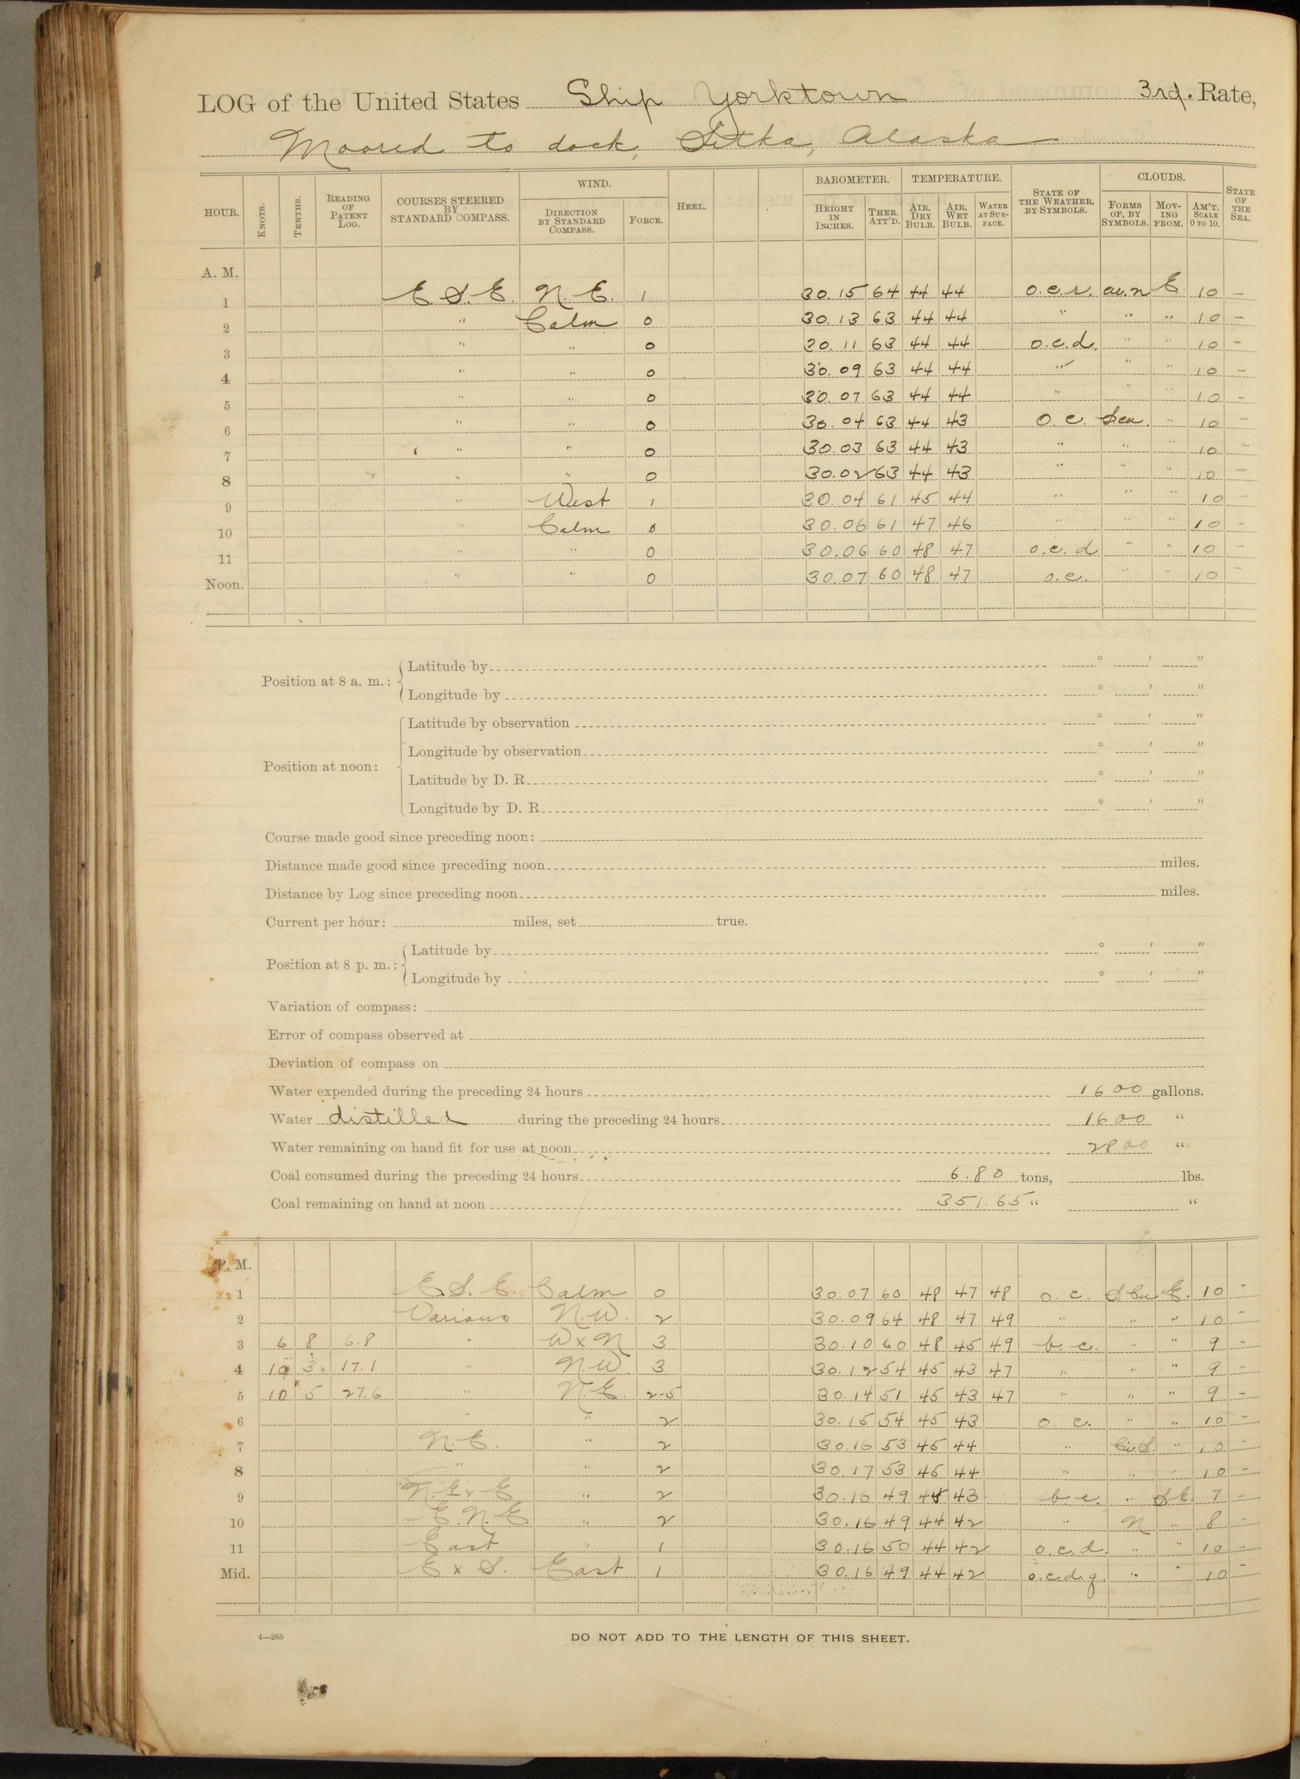 LOG of the United States Ship Yorktown 3rd. Rate,
Moored to dock, Sitka, Alaska
HOUR. KNOTS. TENTHS. READING OF PATENT LOG. COURSES STEERED BY STANDARD COMPASS. WIND. DIRECTION BY STANDARD COMPASS. FORCE. HEEL. BAROMETER. HEIGHT IN INCHES. THER. ATT'D. TEMPERATURE. AIR, DRY BULB. AIR, WET BULB. WATER AT SURFACE. STATE OF THE WEATHER, BY SYMBOLS. CLOUDS. FORMS OF, BY SYMBOLS. MOVING FROM. AM'T. SCALE 0 TO 10. STATE OF THE SEA.
A. M.
1 E.S.E. N.E. 1 30.15 64 44 44 o.c.r. E 10 –
2 " Calm 0 30.13 63 44 44 " " " 10 –
3 " " 0 30.11 63 44 44 o.c.d. " " 10 –
4 " " 0 30.09 63 44 44 " " " 10 –
5 " " 0 30.07 63 44 44 " " " 10 –
6 " " 0 30.04 63 44 43 o.c. " 10 –
7 " " 0 30.03 63 44 43 " " " 10 –
8 " " 0 30.02 63 44 43 " " " 10 –
9 " West 1 30.04 61 45 44 " " " 10 –
10 " Calm 0 30.06 61 47 46 " " " 10 –
11 " " 0 30.06 60 48 47 o.c.d " " 10 –
Noon. " " 0 30.07 60 48 47 o.c. " " 10 –
Position at 8 a. m.: Latitude by ° ′ ″
Longitude by ° ′ ″
Position at noon: Latitude by observation ° ′ ″
Longitude by observation ° ′ ″
Latitude by D. R. ° ′ ″
Longitude by D. R. ° ′ ″
Course made good since preceding noon:
Distance made good since preceding noon miles.
Distance by Log since preceding noon miles.
Current per hour: miles, set true.
Position at 8 p. m.: Latitude by ° ′ ″
Longitude by ° ′ ″
Variation of compass:
Error of compass observed at
Deviation of compass on
Water expended during the preceding 24 hours 1600 gallons.
Water distilled during the preceding 24 hours 1600 "
Water remaining on hand fit for use at noon 2800 "
Coal consumed during the preceding 24 hours 6.80 tons, lbs.
Coal remaining on hand at noon 351.65 " "
P. M.
1 E.S.E. Calm 0 30.07 60 48 47 48 o.c. S.Cu E. 10 –
2 Various N.W. 2 30.09 64 48 47 49 " " " 10 –
3 6 8 6.8 " W x N 3 30.10 60 48 45 49 b.c. " " 9 –
4 10 3 17.1 " N.W. 3 30.12 54 45 43 47 " " " 9 –
5 10 5 27.6 " N.E. 2-5 30.14 51 45 43 47 " " " 9 –
6 " " 2 30.15 54 45 43 o.c. " " 10 –
7 N.E. " 2 30.16 53 45 44 " " 10 –
8 " " 2 30.17 53 45 44 " " " 10 –
9 N.E x E " 2 30.16 49 43 b.c. " S.E. 7 –
10 E.N.E. " 2 30.16 49 44 42 " N " 8 –
11 East " 1 30.16 50 44 42 o.c.d. " " 10 –
Mid. E x S. East 1 30.16 49 44 42 o.c.d.q. " " 10 –
4—265
DO NOT ADD TO THE LENGTH OF THIS SHEET.